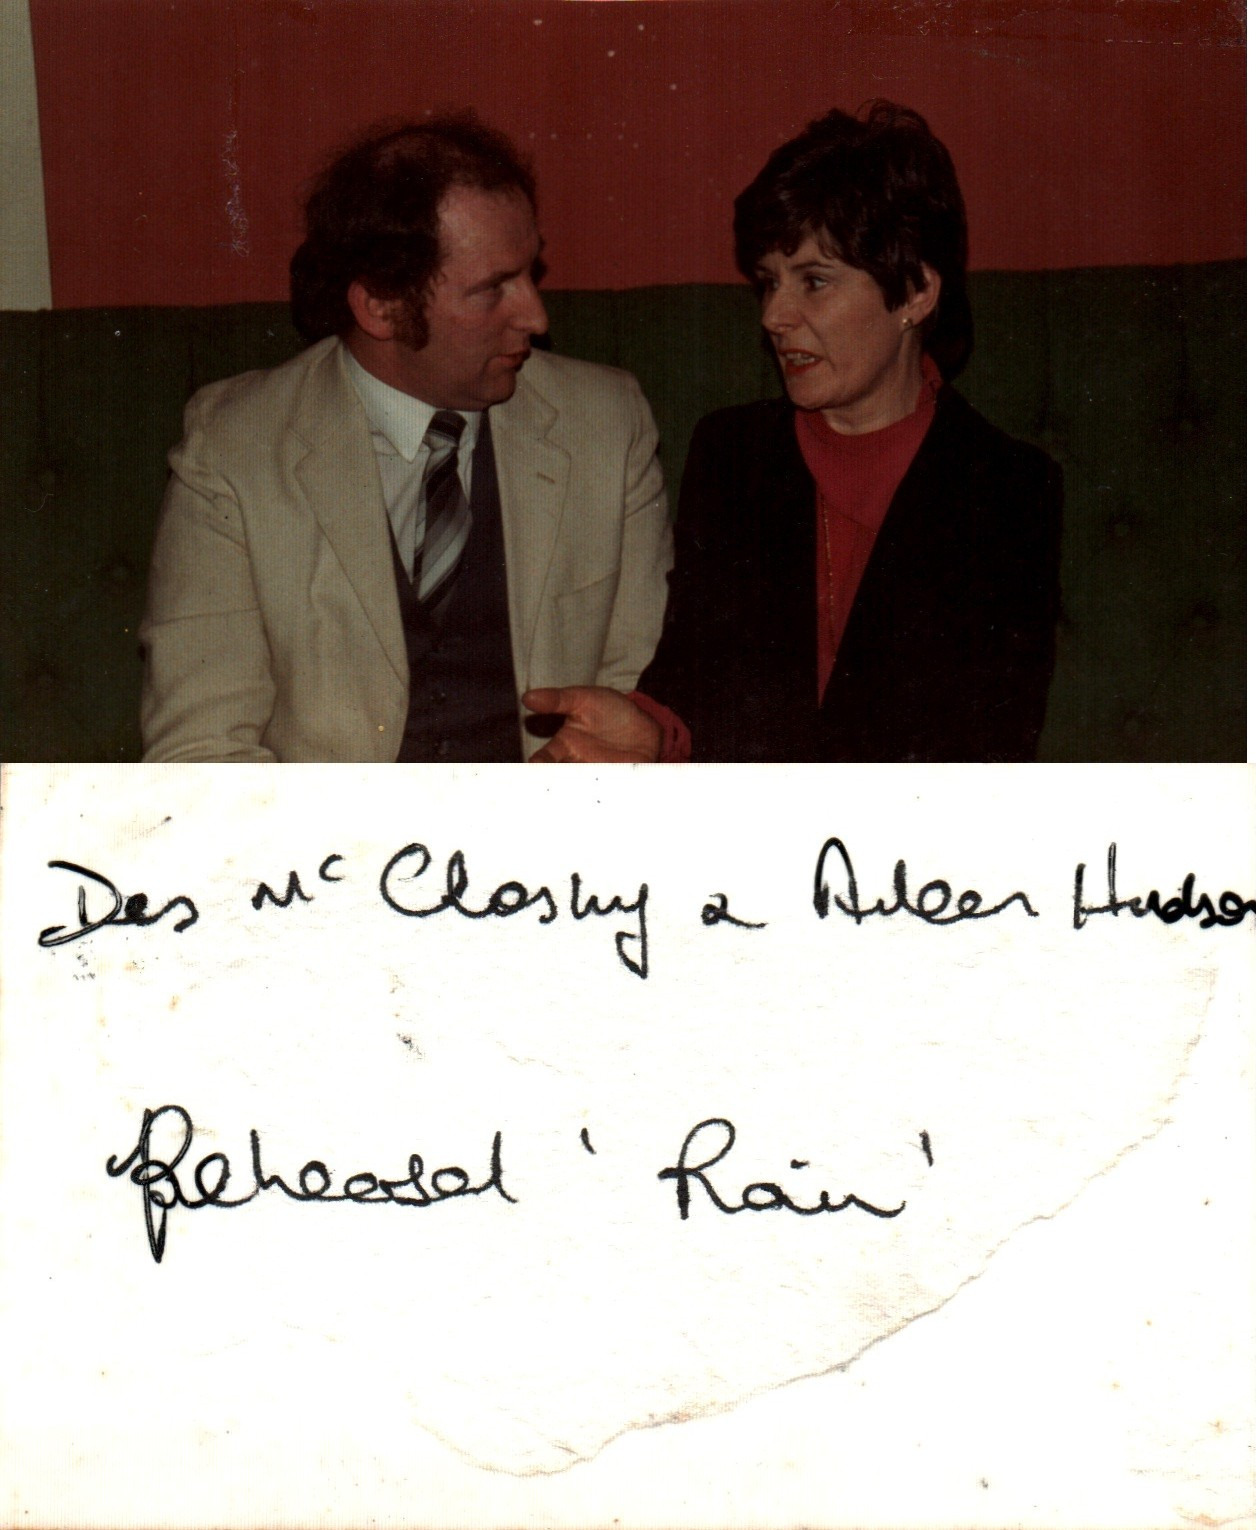 Des Mc Closky & Aileen Hudson
Rehearsal 'Rain'